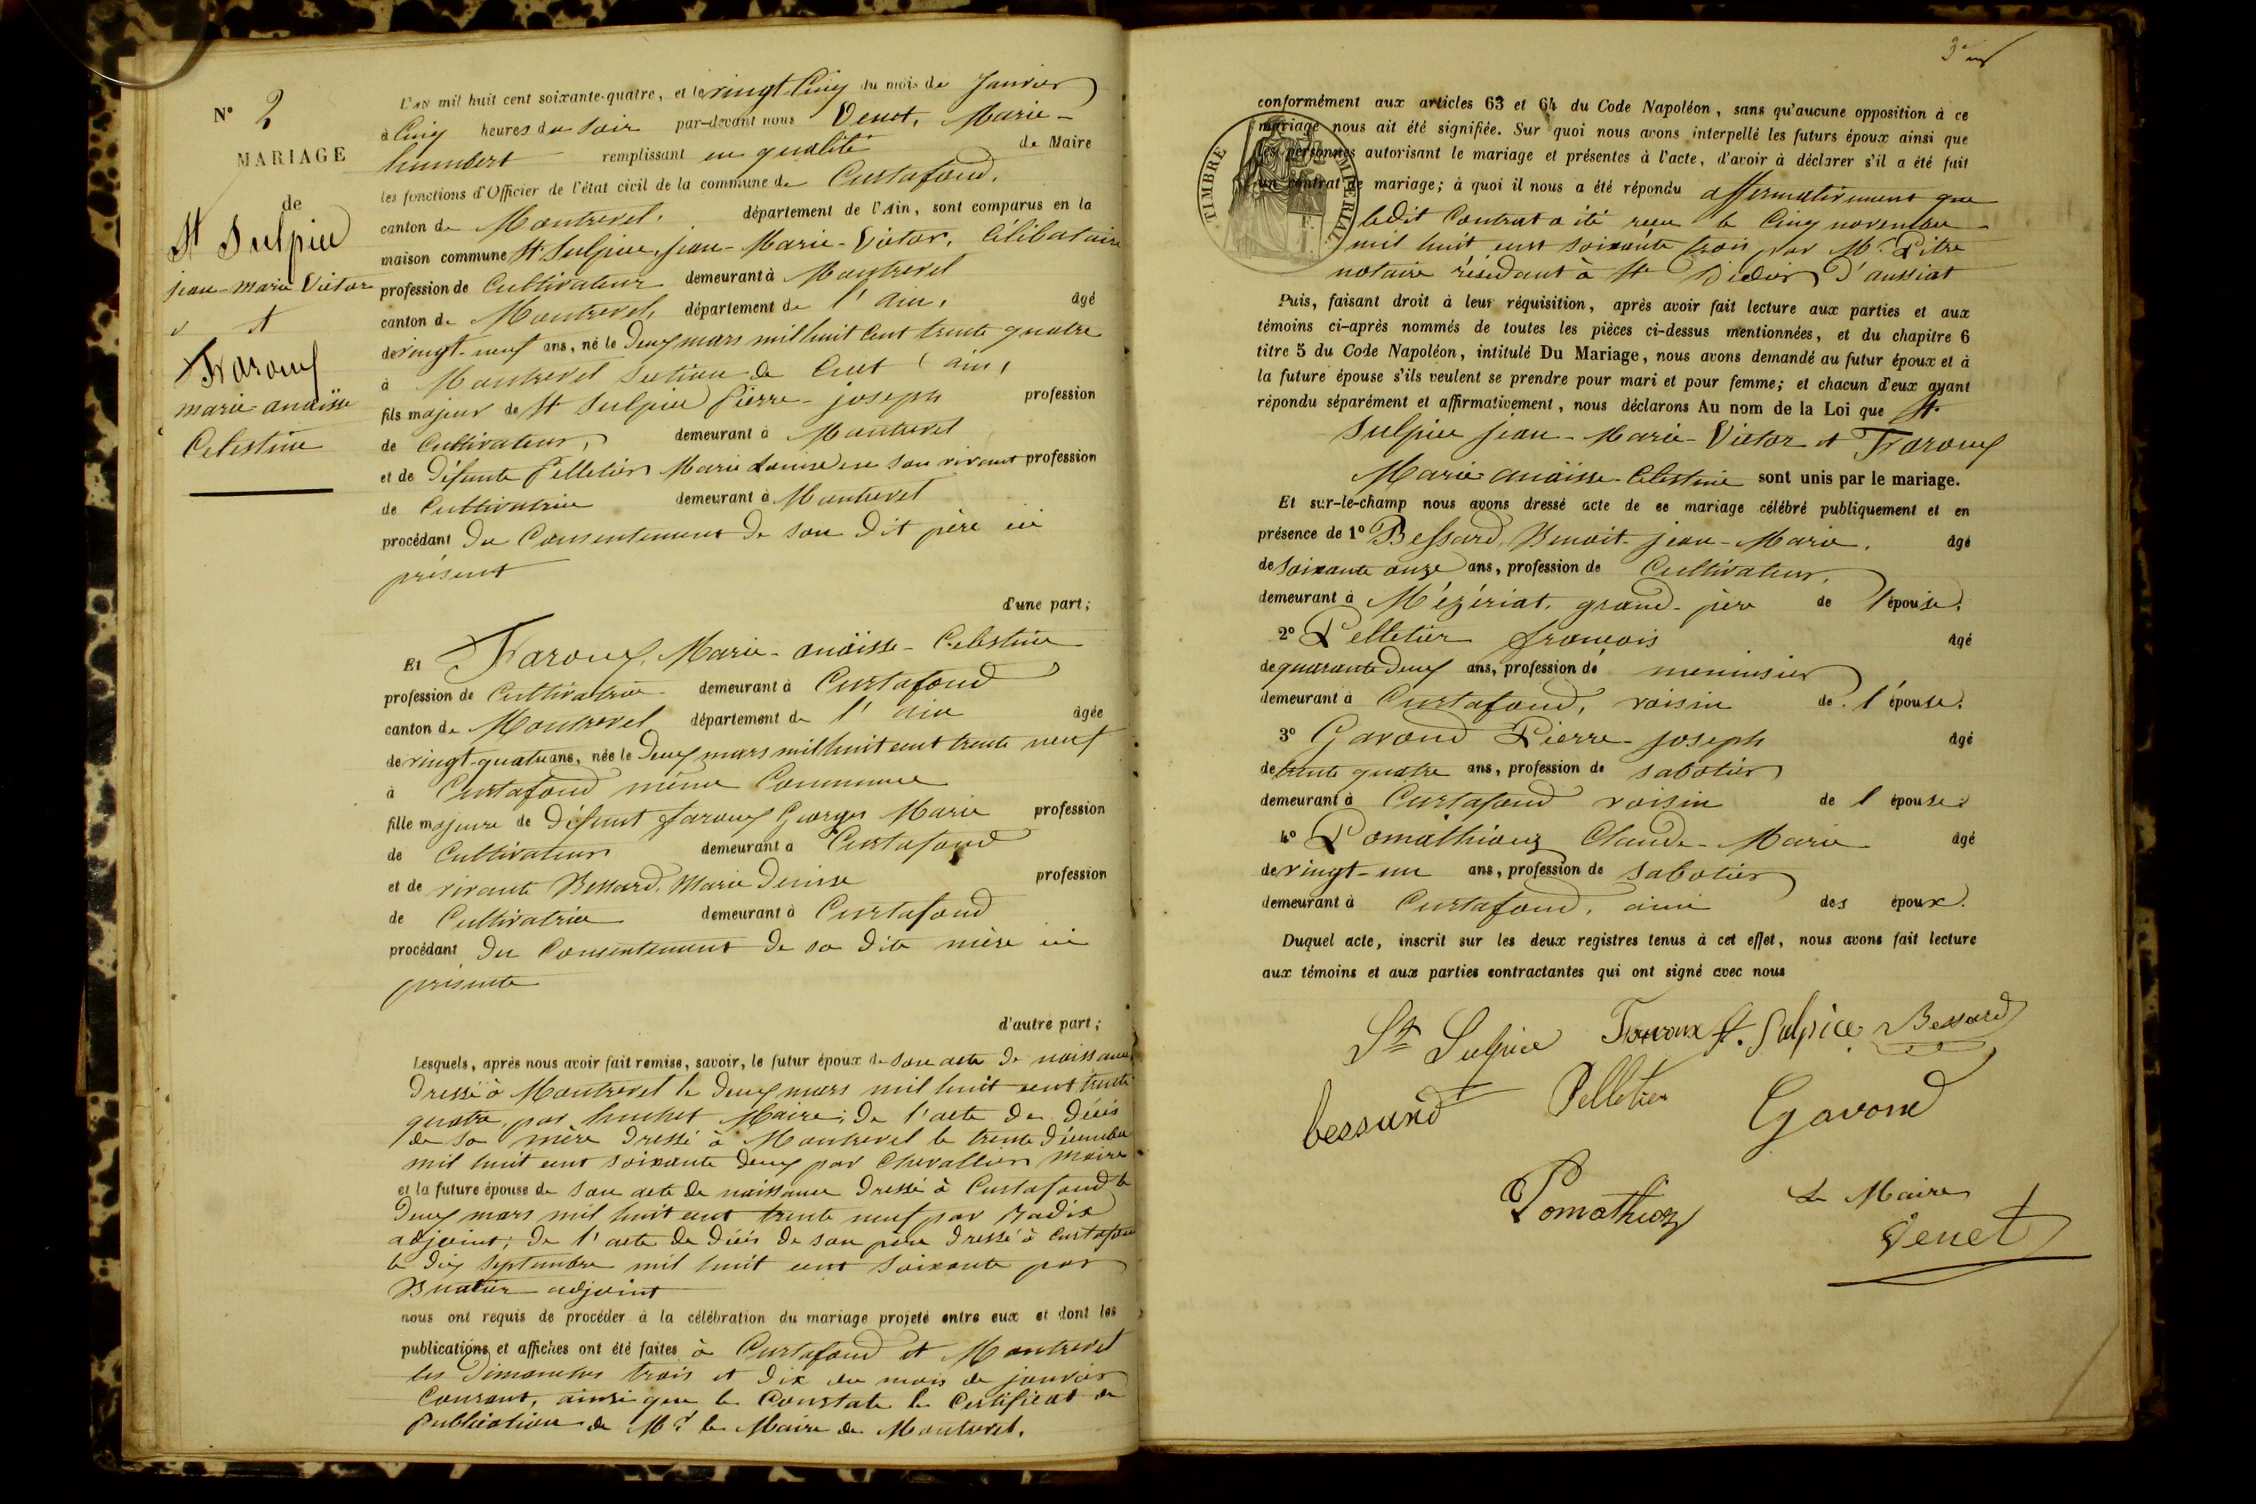 N° 2
MARIAGE
de
St Sulpice
jean-marie Victor
et
Faroux
marie anaïsse
Celestine
L'AN mil huit cent soixante-quatre, et le vingt-Cinq du mois de Janvier
à Cinq heures du soir par-devant nous Venet, Marie-
humbert remplissant en qualité de Maire
les fonctions d'Officier de l'état civil de la commune de Curtafond,
canton de Montrevel, département de l'Ain, sont comparus en la
maison commune St Sulpice, jean-Marie-Victor, Célibataire
profession de Cultivateur demeurant à Montrevel
canton de Montrevel, département de l'ain, âgé
de vingt-neuf ans, né le Deux mars mil huit Cent trente quatre
à Montrevel section de Cuet (ain)
fils majeur de St Sulpice Pierre-joseph profession
de Cultivateur, demeurant à Montrevel
et de Défunte Pelletier Marie Louise en son vivant profession
de Cultivatrice demeurant à Montrevel
procédant Du Consentement De son Dit père ici
présent
d'une part;
Et Faroux, Marie-anaïsse-Celestine
profession de Cultivatrice demeurant à Curtafond
canton de Montrevel département de l'ain âgée
de vingt-quatre ans, née le Deux mars mil huit cent trente neuf
à Curtafond même Commune
fille majeure de Défunt faroux Georges Marie profession
de Cultivateur demeurant à Curtafond
et de vivante Bessard, Marie Denise profession
de Cultivatrice demeurant à Curtafond
procédant Du Consentement De sa Dite mère ici
présente
d'autre part;
Lesquels, après nous avoir fait remise, savoir, le futur époux de son acte De naissance
Dressé à Montrevel le Deux mars mil huit cent trente
quatre par huchet Maire; De l'acte De Décès
de sa mère Dressé à Montrevel le trente Décembre
mil huit cent soixante Deux par Chevallier maire
et la future épouse de son acte de naissance Dressé à Curtafond le
Deux mars mil huit cent trente neuf par
adjoint; De l'acte De Décès De son père Dressé à Curtafond
le Dix septembre mil huit cent soixante par
Buatier adjoint
nous ont requis de procéder à la célébration du mariage projeté entre eux et dont les
publications et affiches ont été faites à Curtafond et Montrevel
les Dimanches trois et Dix du mois de janvier
Courant, ainsi que le Constate le Certificat de
Publication de Mr le Maire de Montrevel.
conformément aux articles 63 et 64 du Code Napoléon, sans qu'aucune opposition à ce
mariage nous ait été signifiée. Sur quoi nous avons interpellé les futurs époux ainsi que
les personnes autorisant le mariage et présentes à l'acte, d'avoir à déclarer s'il a été fait
un contrat de mariage; à quoi il nous a été répondu affirmativement que
TIMBRE IMPERIAL
ledit Contrat a été reçu le Cinq novembre
mil huit cent soixante trois par Me Pitre
notaire résidant à St Didier D'aussiat
Puis, faisant droit à leur réquisition, après avoir fait lecture aux parties et aux
témoins ci-après nommés de toutes les pièces ci-dessus mentionnées, et du chapitre 6
titre 5 du Code Napoléon, intitulé Du Mariage, nous avons demandé au futur époux et à
la future épouse s'ils veulent se prendre pour mari et pour femme; et chacun d'eux ayant
répondu séparément et affirmativement, nous déclarons Au nom de la Loi que St
Sulpice jean-Marie-Victor et Faroux
Marie anaïsse-Celestine sont unis par le mariage.
Et sur-le-champ nous avons dressé acte de ce mariage célébré publiquement et en
présence de 1° Bessard, Benoit-jean-Marie, âgé
de soixante onze ans, profession de Cultivateur,
demeurant à Mézériat, grand-père de l'épouse,
2° Pelletier françois âgé
de quarante Deux ans, profession de menuisier
demeurant à Curtafond, voisin de l'épouse,
3° Gavond Pierre-joseph âgé
de trente quatre ans, profession de sabotier
demeurant à Curtafond voisin de l'épouse;
4° Pomathioz Claude-Marie âgé
de vingt-un ans, profession de sabotier
demeurant à Curtafond, ami des époux.
Duquel acte, inscrit sur les deux registres tenus à cet effet, nous avons fait lecture
aux témoins et aux parties contractantes qui ont signé avec nous
St Sulpice Faroux St. Sulpice Bessard
bessard Pelletier Gavond
Pomathioz Le Maire
Venet